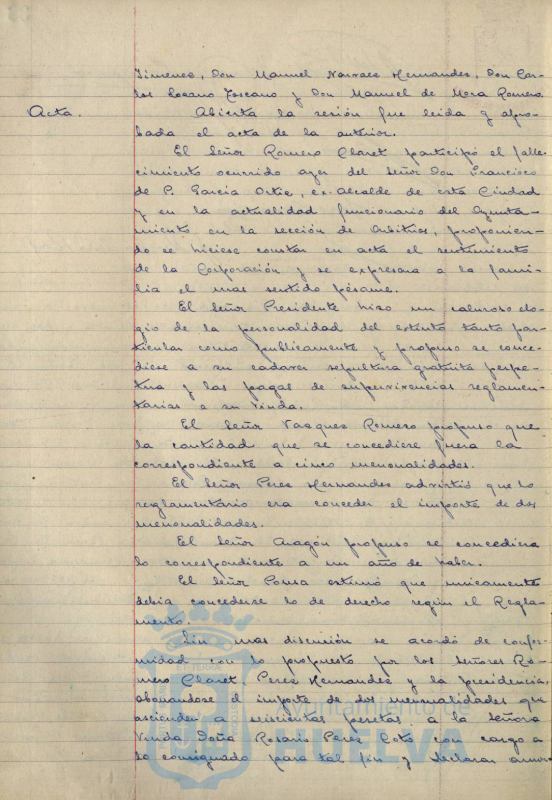 Jimenez, Don Manuel Narvaez Hernandez, Don Car-
los Lozano Toscano y Don Manuel de Mora Romero.
Acta. Abierta la sesión fue leida y apro-
bada el acta de la anterior.
El Señor Romero Claret participó el falle-
cimiento ocurrido ayer del Señor Don Francisco
de P. Garcia Ortiz, ex-alcalde de esta Ciudad
y en la actualidad funcionario del Ayunta-
miento en la sección de Arbitrios, proponien-
do se hiciese constar en acta el sentimiento
de la Corporación y se expresara a la fami-
lia el mas sentido pésame.
El Señor Presidente hizo un caluroso elo-
gio de la personalidad del extinto tanto par-
ticular como publicamente y propuso se conce-
diese a su cadaver sepultura gratuita perpe-
tua y las pagas de supervivencias reglamen-
tarias a su Viuda.
El Señor Vazquez Romero propuso que
la cantidad que se concediese fuera la
correspondiente a cinco mensualidades.
El Señor Perez Hernandez advirtió que lo
reglamentário era conceder el importe de dos
mensualidades.
El Señor Aragón propuso se concediera
lo correspondiente a un año de haber.
El Señor Ponsa estimó que unicamente
debia concederse lo de derecho según el Regla-
mento.
Sin mas discusión se acordó de confor-
midad con lo propuesto por los señores Ro-
mero Claret, Perez Hernandez y la presidencia,
abonandose el importe de dos mensualidades que
ascienden a seiscientas pesetas a la señora
Viuda Doña Rosario Perez Coto con cargo a
lo consignado para tal fin y declarar
Ayuntamiento de
HUELVA